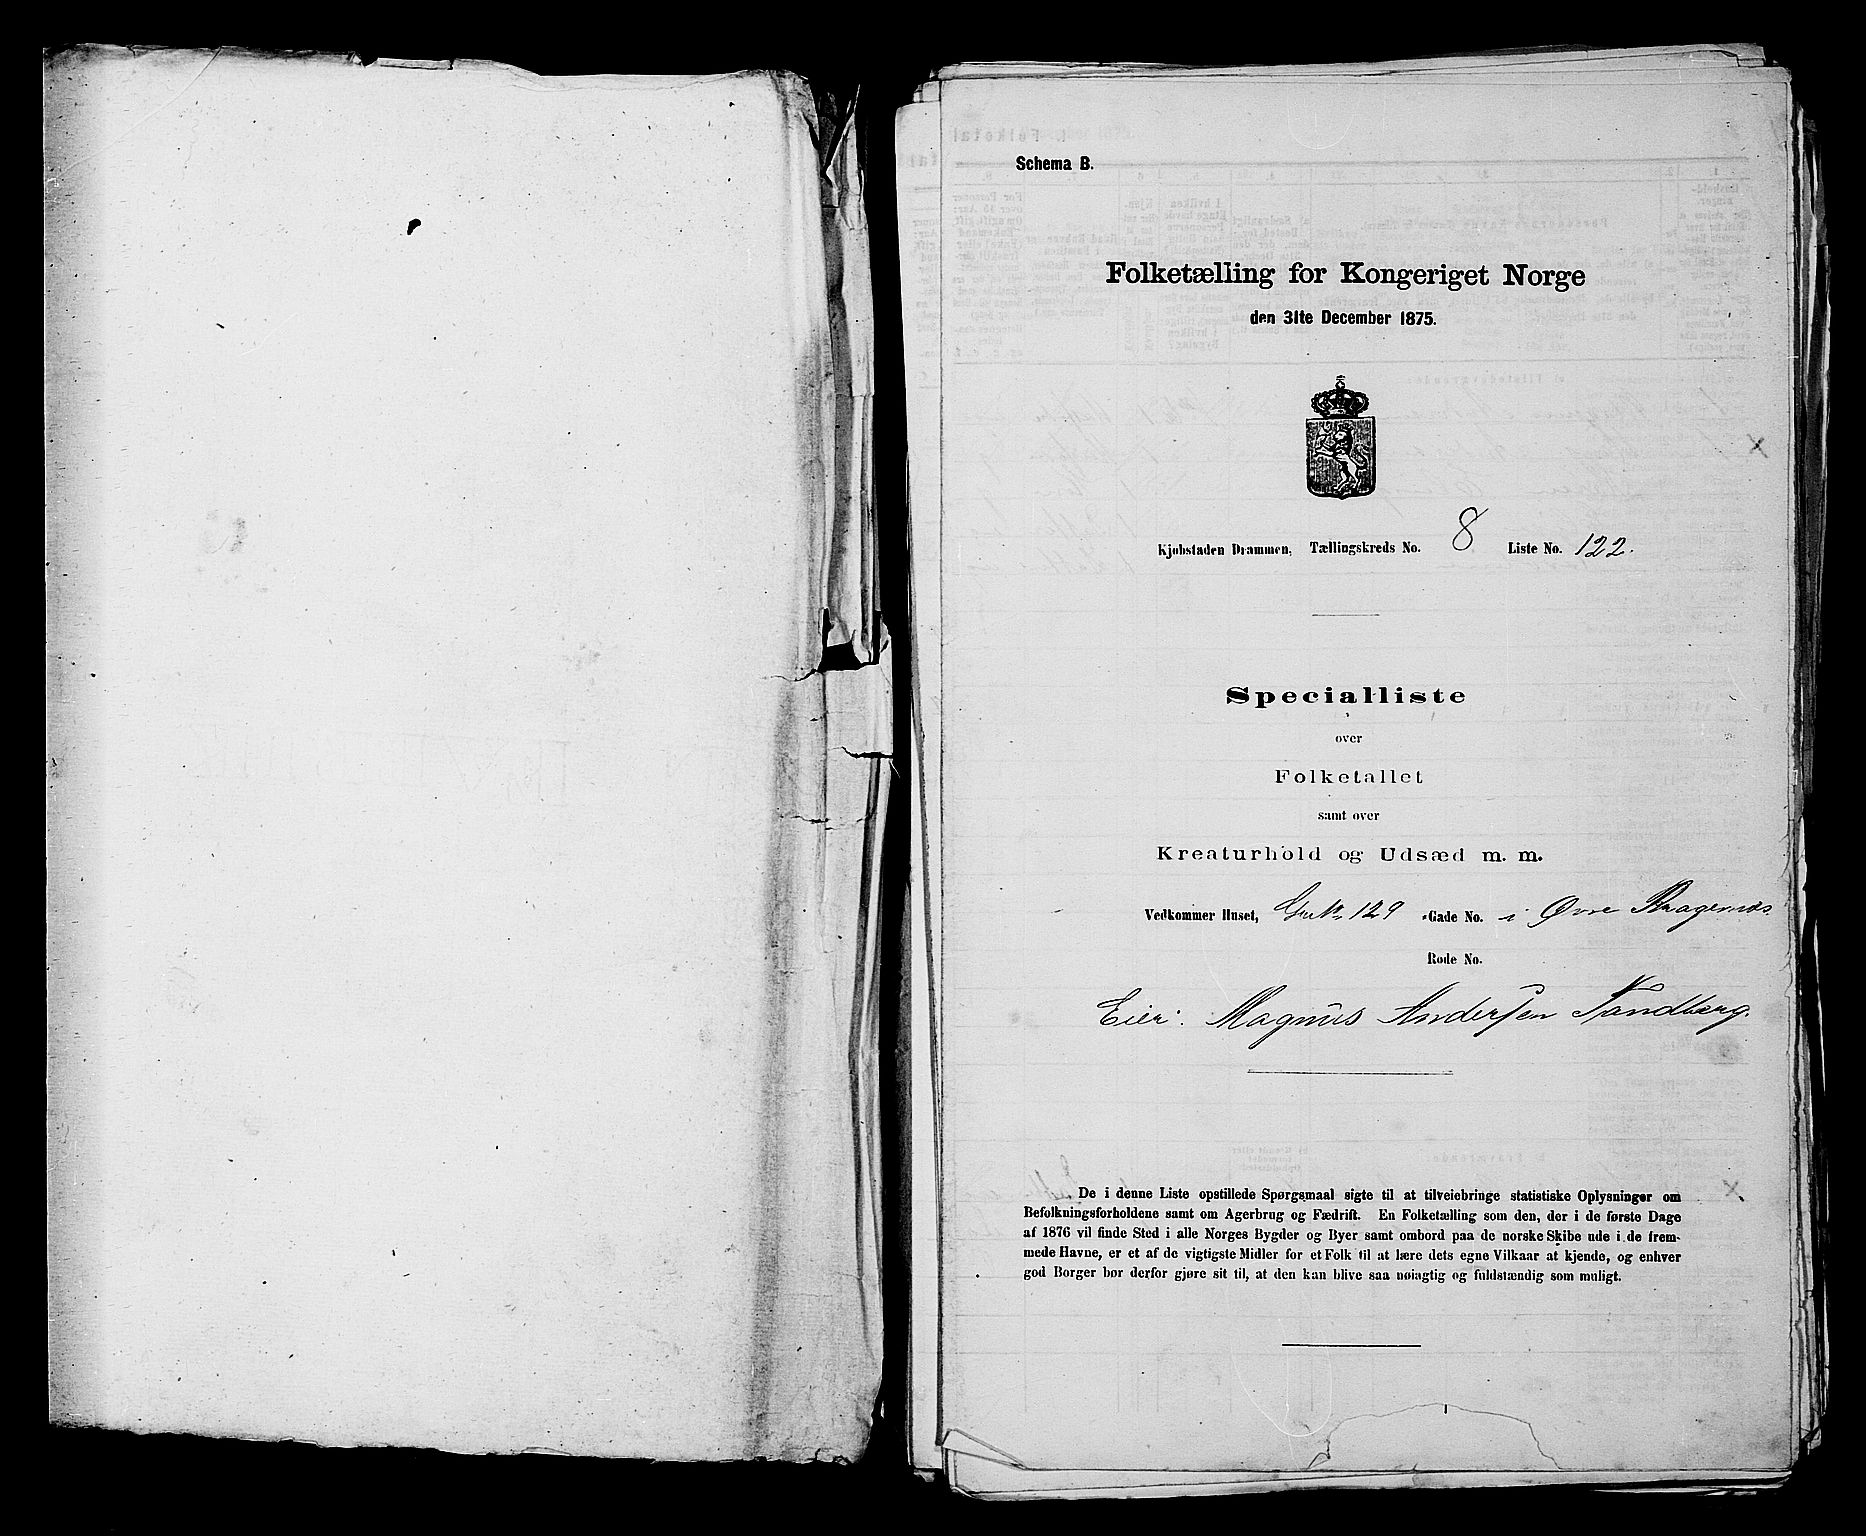 Schema B.
Folketælling for Kongeriget Norge
den 31te December 1875.
Kjøbstaden Drammen, Tællingskreds No. 8 Liste No. 122.
Specialliste
over
Folketallet
samt over
Kreaturhold og Udsæd m. m.
Vedkommer Huset, 129 Gade No. i Øvre Bragernes
Rode No.
Eier: Magnus Andersen Sandberg.
De i denne Liste opstillede Spørgsmaal sigte til at tilveiebringe statistiske Oplysninger om
Befolkningsforholdene samt om Agerbrug og Fædrift. En Folketælling som den, der i de første Dage
af 1876 vil finde Sted i alle Norges Bygder og Byer samt ombord paa de norske Skibe ude i de frem-
mede Havne, er et af de vigtigste Midler for et Folk til at lære dets egne Vilkaar at kjende, og enhver
god Borger bør derfor gjøre sit til, at den kan blive saa nøiagtig og fuldstændig som muligt.